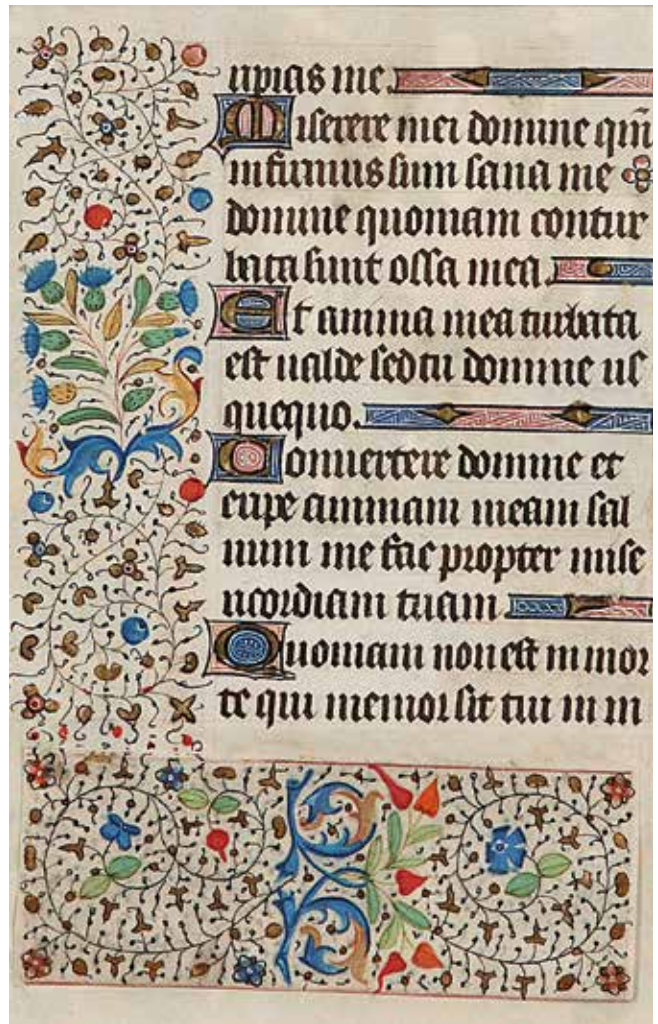 ripias me.
Miserere mei domine qm̄
infirmus sum sana me
domine quoniam contur
bata sunt ossa mea.
Et anima mea turbata
est ualde sed tu domine us
quequo.
Conuertere domine et
eripe animam meam sal
uum me fac propter mise
ricordiam tuam
Quoniam non est in mor
te qui memor sit tui in in